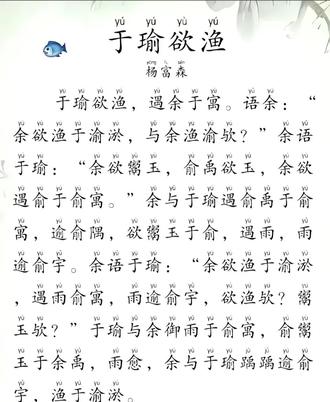 yú yú yù yú
于瑜欲渔
杨富森
于瑜欲渔，遇余于寓。语余：“
余欲渔于渝淤，与余渔渝欤？”余语
于瑜：“余欲鬻玉，俞禹欲玉，余欲
遇俞于俞寓。”余与于瑜遇俞禹于俞
寓，逾俞隅，欲鬻玉于俞，遇雨，雨
逾俞宇。余语于瑜：“余欲渔于渝淤
，遇雨俞寓，雨逾俞宇，欲渔欤？鬻
玉欤？”于瑜与余御雨于俞寓，俞鬻
玉于余禹，雨愈，余与于瑜踽踽逾俞
宇，渔于渝淤。